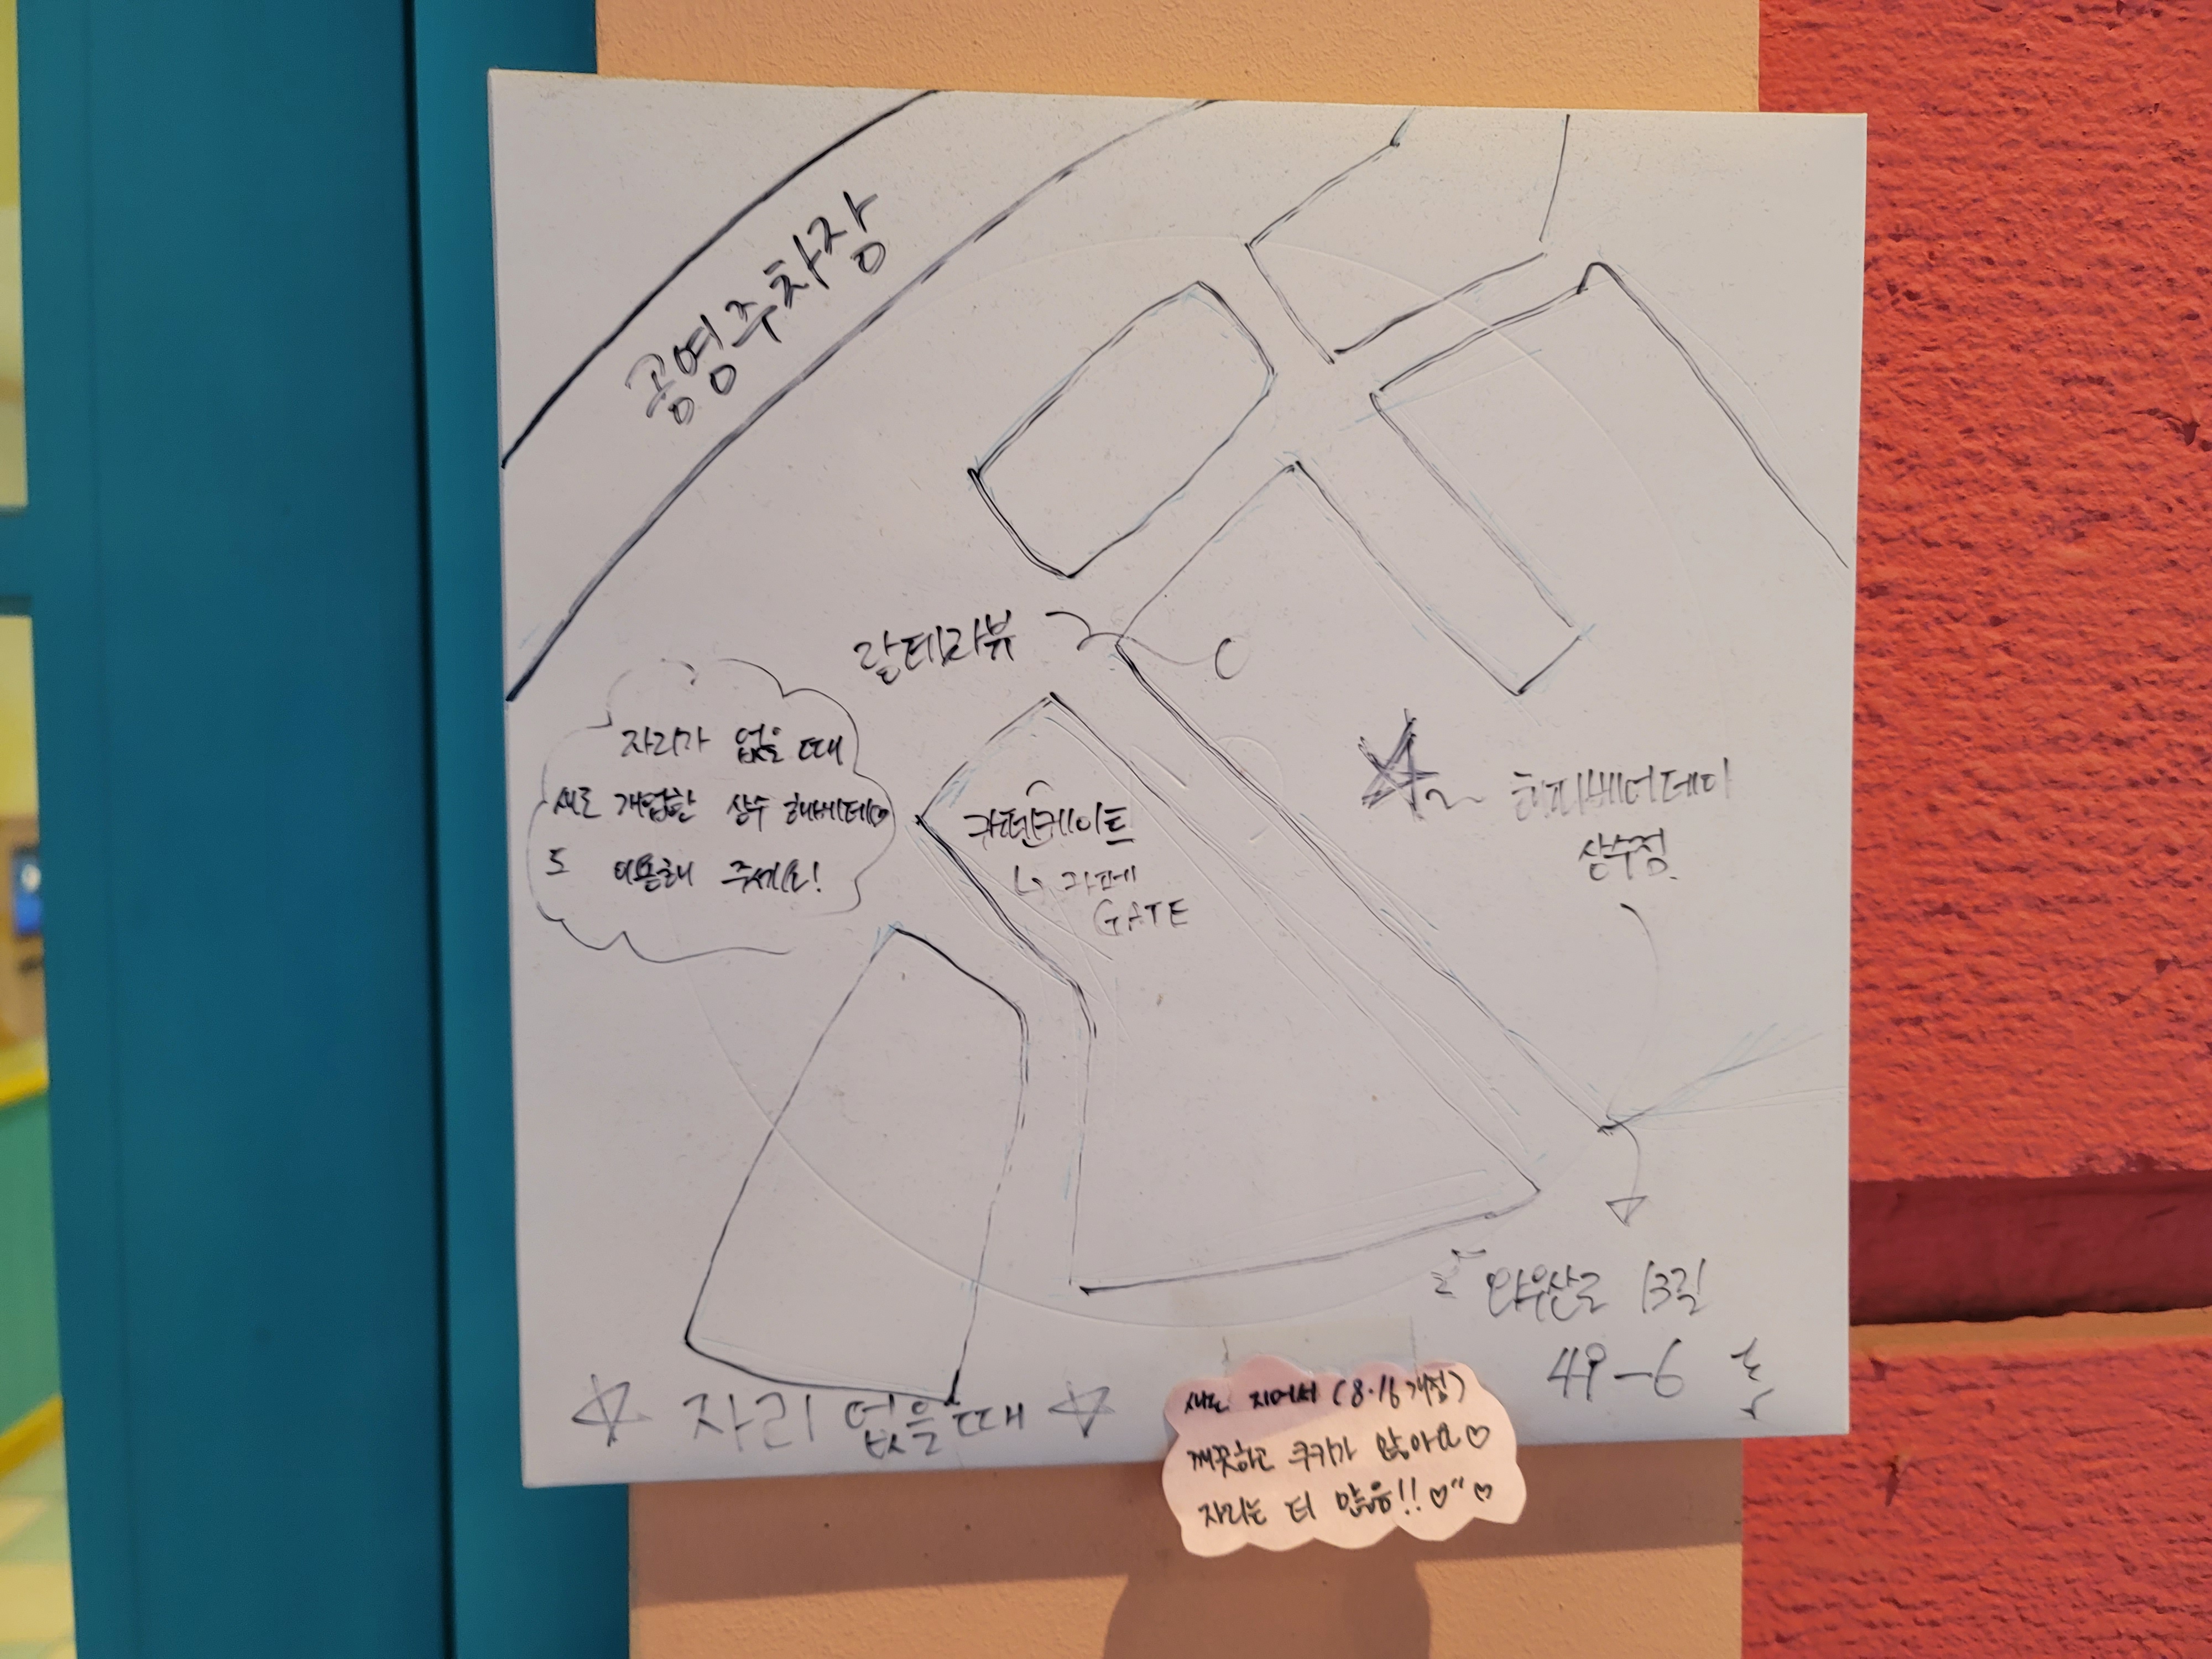 공영주차장
랄테라뷰
자리가 없을 때
새로 개업한 상수 해베데이
도 이용해 주세요!
카페게이트
↳ 카페
GATE
해피베더데이
상수점
와우산로 13길
49-6
☆ 자리 없을 때 ☆
새로 지어서 (8.16 개점)
깨끗하고 쿠키가 많아요♡
자리는 더 많음!! ♡"♡